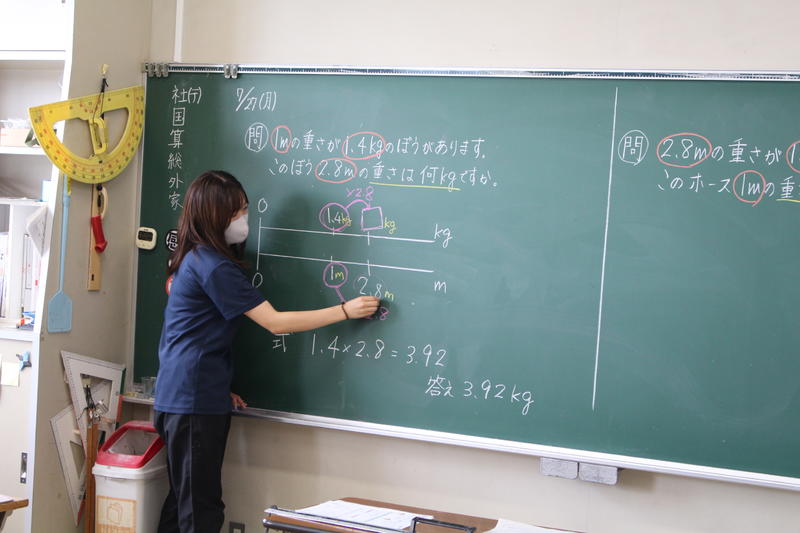 社(行)
国
算
総
外
家
7/27(月)
問 1mの重さが1.4kgのぼうがあります。
このぼう2.8mの重さは何kgですか。
×2.8
0 1.4kg □kg kg
0 1m 2.8m m
2.8
式 1.4×2.8=3.92
答え 3.92kg
問 2.8mの重さが
このホース1mの重